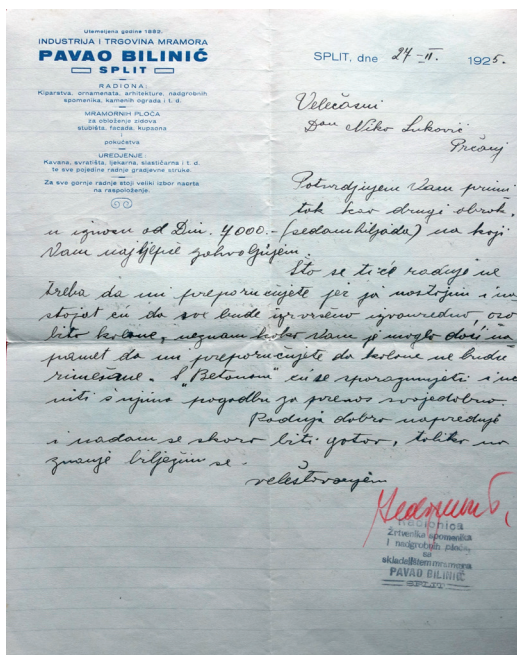 Utemeljena godine 1883.
INDUSTRIJA I TRGOVINA MRAMORA
PAVAO BILINIĆ
SPLIT
RADIONA:
Kiparstva, ornamenata, arhitekture, nadgrobnih
spomenika, kamenih ograda i t. d.
MRAMORNIH PLOČA
za obloženje zidova
stubišta, fasada, kupaona
i
pokućstva
UREDJENJE:
Kavana, svratišta, ljekarna, slastičarna i t. d.
te sve pojedine radnje gradjevne struke.
Za sve gornje radnje stoji veliki izbor nacrta
na raspoloženje.
SPLIT, dne 24-II. 1925.
Velečasni
Don Niko Luković
Prčanj
Potvrdjujem Vam primi
tak kao drugi obrok,
u iznosu od Din. 7000.- (sedamhiljada) na koji
Vam najljepše zahvaljujem.
Što se tiče radnje ne
treba da mi preporučujete jer ja nastojim i na
stojat ću da sve bude izvršeno izvanredno, oso
bito kolone, neznam kako Vam je moglo doći na
pamet da mi preporučujete da kolone ne budu
. S "Betonom" ću se sporazumjeti i uči
niti s njima pogodbu za prenos svojedobno.
Radnja dobro napreduje
i nadam se skoro biti gotov, toliko na
znanje biljezim se.
veleštovanjem
Radionica
Žrtvenika spomenika
i nadgrobnih ploča,
sa
skladištem mramora
PAVAO BILINIĆ
SPLIT